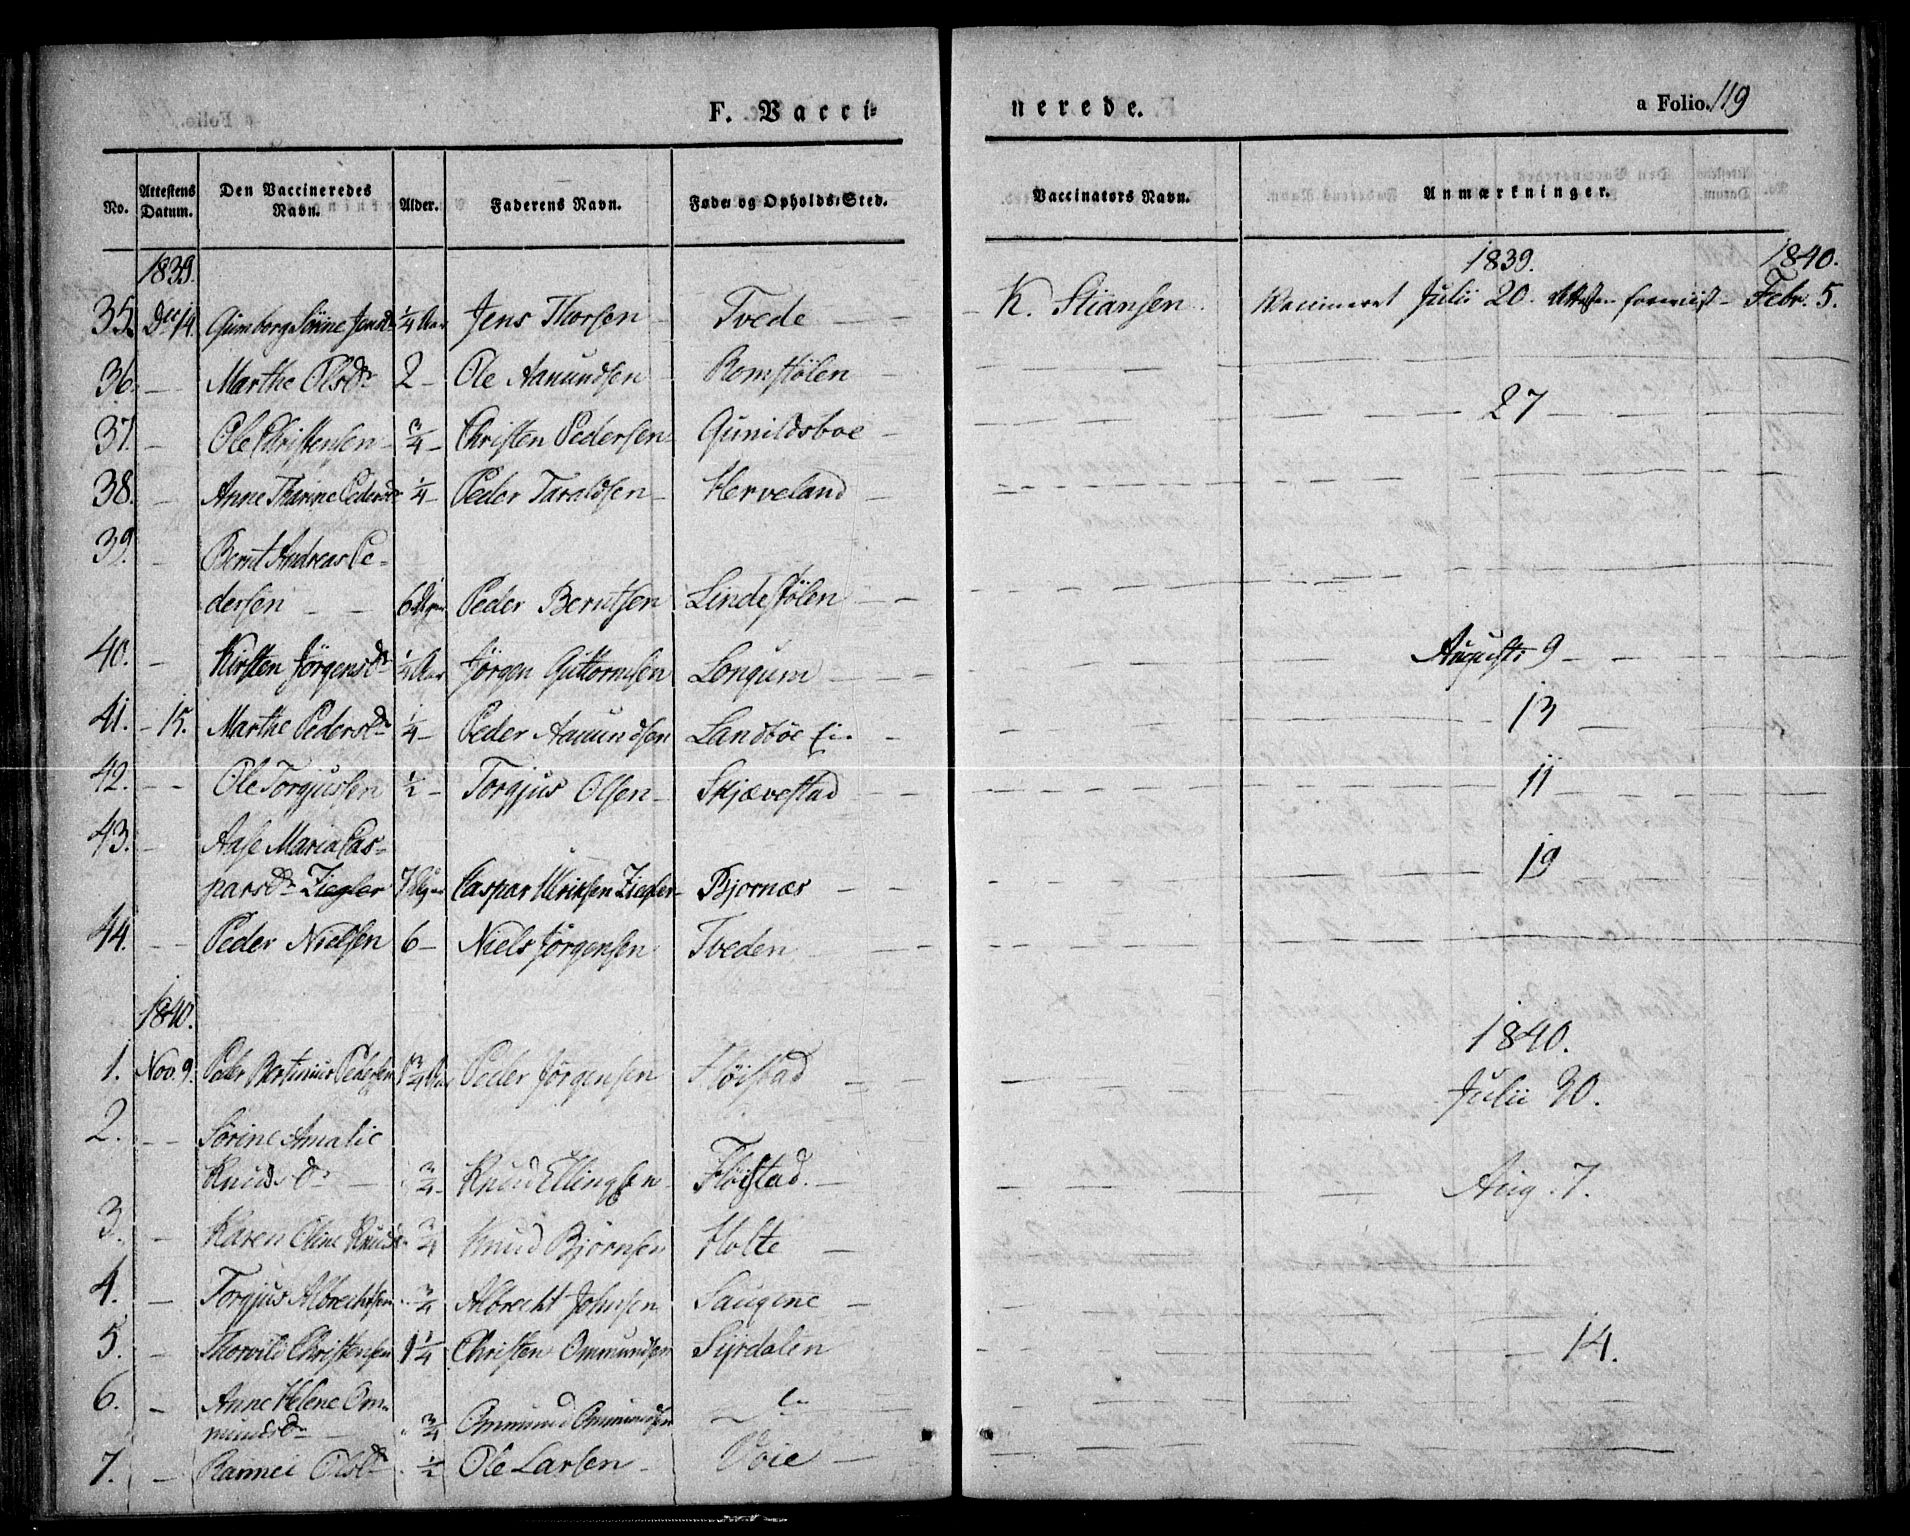 F. Vacci-
nerede.
a Folio. 119
No.
Attestens Datum.
Den Vaccineredes Navn.
Alder.
Faderens Navn.
Føde- og Opholds-Sted.
Vaccinators Navn.
Anmærkninger.
1839.
1839. 1840.
35. Dec 14. Gumborg Sörine Jensdr 1/4 Aar Jens Thorsen Tvede K. Stiansen. Vaccineret Julii 20. Attesten foreviist Febr. 5.
36. Marthe Olsdr 2 Ole Aanundsen Romstölen
37. Ole Christensen Christen Pedersen Gunildsboe 27
38. Anne Thrine Pedersdr 1/4 Peder Taraldsen Herveland
39. Bernt Andreas Pe-
dersen 6 Peder Berntsen Lindestölen
40. Kirsten Jörgensdr Aar Jörgen Guttormsen Longum Augusti 9
41. 15. Marthe Pedersdr 1/4 Peder Aanundsen Landböe 13
42. Ole Torgjussen 1/2 Torgjus Olsen Skjævestad 11
43. Aase Maria Cas-
parsdr Ziegler 7 Caspar Ulriksen Ziegler Bjornæs 19
44. Peder Nielsen 6 Niels Jörgensen Tveden
1840.
1840.
1. Nov. 9. Peder Bertinius Pedersen 3/4 Aar Peder Jörgensen Flöistad Julii 30.
2. Sörine Amalie
Knudsdr 3/4 Knud Ellingsen Flöistad. Aug. 7.
3. Karen Oline Knudsdr 3/4 Knud Bjornsen Holte
4. Torgjus Albrechtsen 3/4 Albrecht Johnsen Saugene
5. Thorvild Christensen 1 1/4 Christen Ommundsen Syrdalen 14.
6. Anne Helene Om-
mundsdr 3/4 Ommund Ommundsen
7. Ramei Olsdr 1/2 Ole Larsen Voie